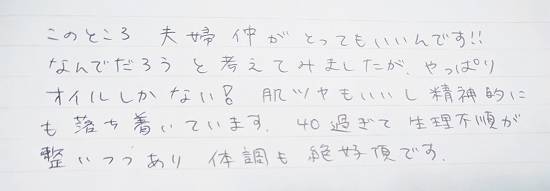 このところ 夫婦仲が とってもいいんです!!
なんでだろう と考えてみましたが、やっぱり
オイルしかない! 肌ツヤもいいし精神的に
も落ち着いています。40過ぎて 生理不順が
整いつつあり 体調も 絶好頂です。